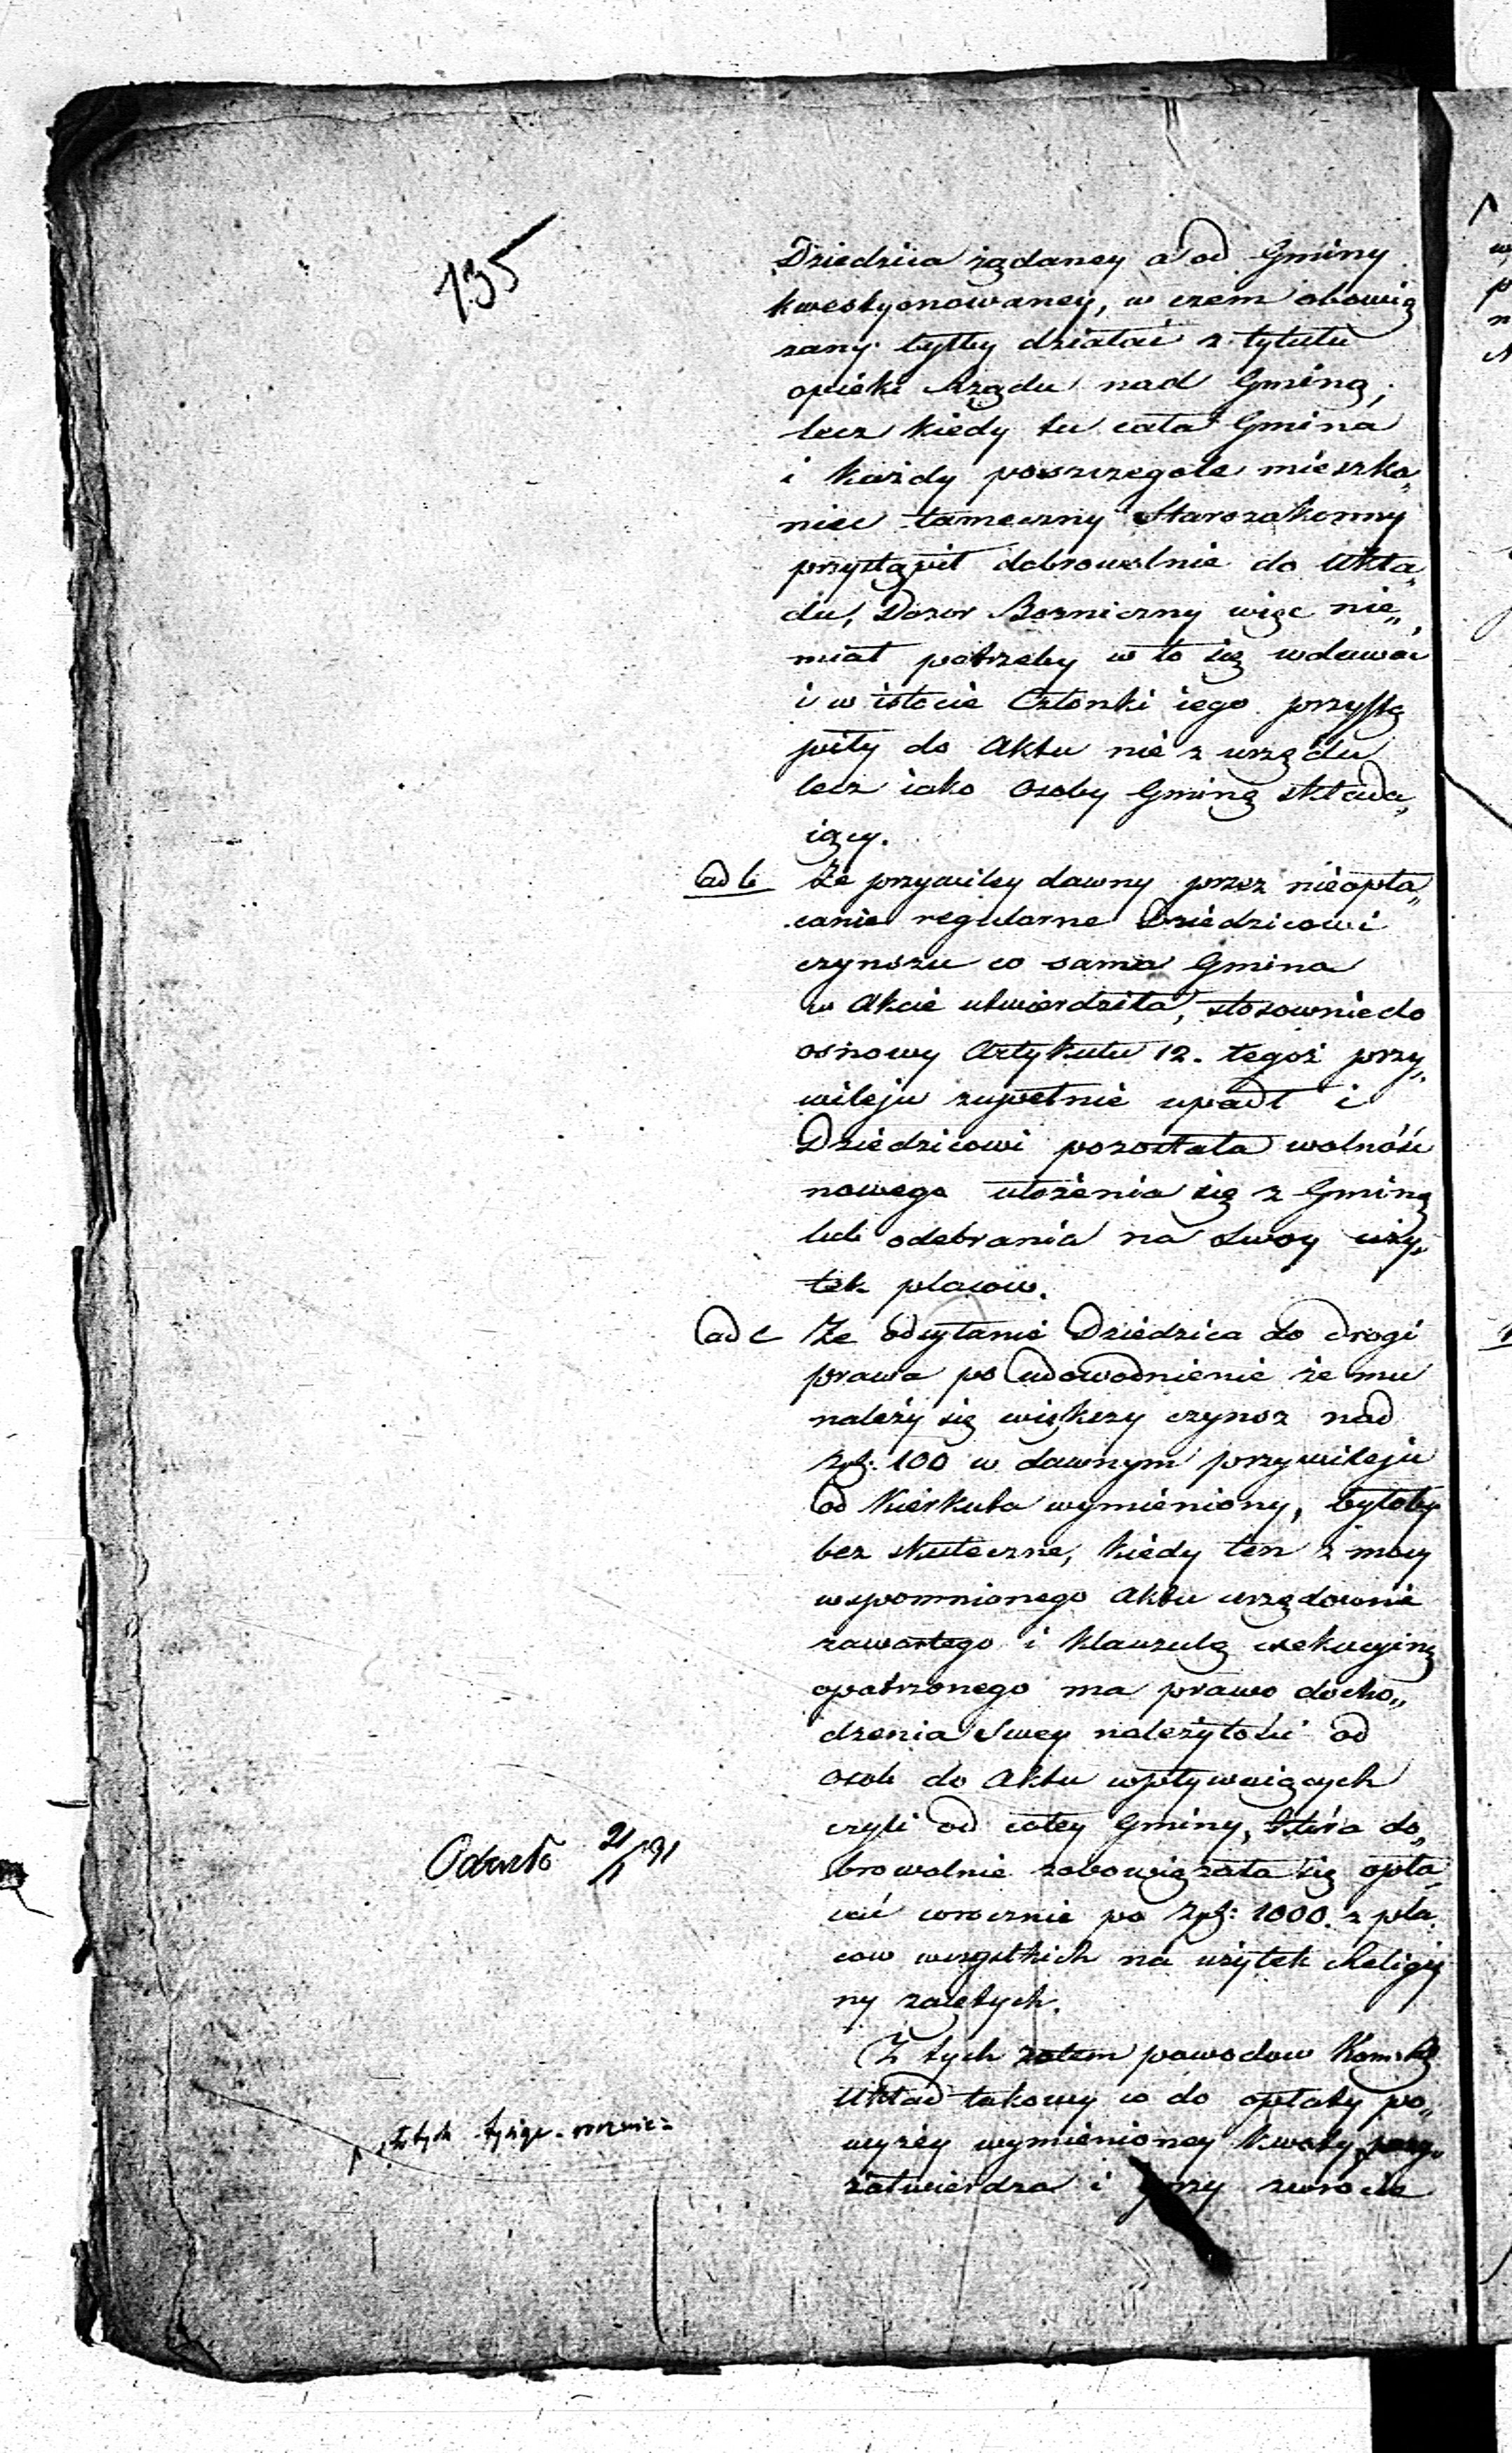 135
Dziedzica żądaney a od Gminy
kwestyonowaney, w czem obowią
zany byłby działać z tytułu
opieki Rządu nad Gminą,
lecz kiedy tu cała Gmina
i każdy poszczegole mieszka„
niec tameczny Starozakonny
przystąpił dobrowolnie do Ukła„
du, Dozor Bozniczny więc nie„
miał potrzeby w to się wdawać
i w istocie Członki iego przystą
piły do Aktu nie z urzędu
lecz iako Osoby Gminę składa„
iący.
ad b Że przywiley dawny przez nieopła„
canie regularne Dziedzicowi
czynszu co sama Gmina
w Akcie utwierdziła, stosownie do
osnowy Artykułu 12. tegoż przy„
wileju zupełnie upadł i
Dziedzicowi pozostała wolność
nowego ułożenia się z Gminą
lub odebrania na swoy uży„
tek placow.
ad c Że odesłanie Dziedzica do drogi
prawa po udowodnienie że mu
należy się większy czynsz nad
Złp: 100 w dawnym przywileju
od Kierkuta wymieniony, byłoby
bez skuteczne, kiedy ten z mocy
wspomnionego Aktu urzędownie
zawartego i klauzulą exekucyiną
opatrzonego ma prawo docho„
dzenia Swey należytości od
osob do Aktu wpływaiących
czyli od całey Gminy, która do„
browolnie zobowiązała się opła„
cać corocznie po Złp: 1000. z pla„
cow wszystkich na użytek Religiy
ny zaiętych.
Z tych zatem powodow
Układ takowy co do opłaty po„
wyżey wymienioney kwoty
zatwierdza i przy zwrocie
Odeszło 21/1 91
złotych tysiąc rocznie